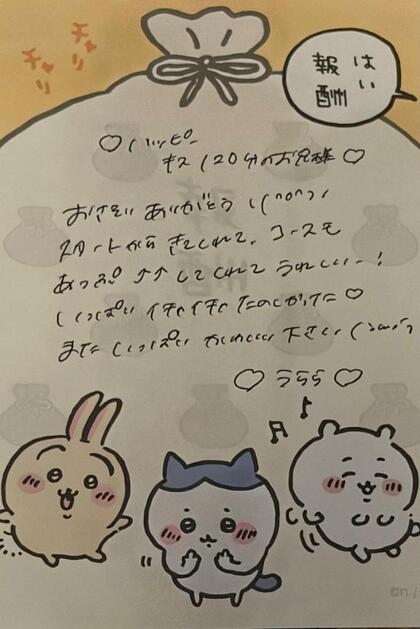 チャリ
チャリ
はい
報酬
♡ ハッピー
キス 120分のお兄様 ♡
おさそい ありがとう \(^o^)/
スタートから きてくれて、コースも
あっぷ ↑↑ してくれて うれしいー!
いっぱい イチャイチャ たのしかった ♡
また いっぱい かわいがって 下さい
♡ うらら ♡
報酬
©n